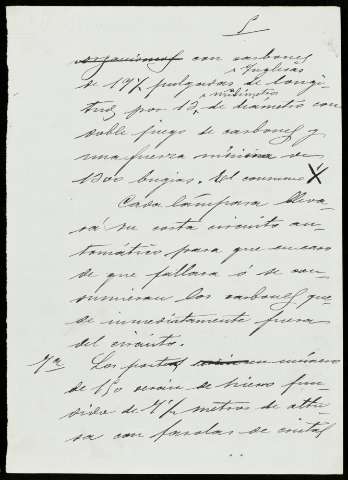 con carbones
Inglesas
de pulgadas de longi-
milimetros
tud, por 12, de diámetro con
doble juego de carbones y
una fuerza mínima de
1300 bugias. del consumo X
Cada lámpara lleva-
rá su corta circuito au-
tomático para que en caso
de que fallara ó se con-
sumieran los carbones que-
de inmediatamente fuera
del circuito.
7ª Los postes en número
de 150 serán de hierro fun-
dido de metros de altu-
ra con farolas de cristal